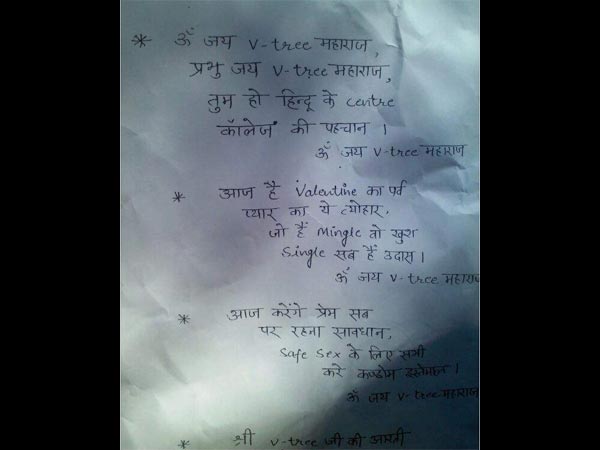 * ॐ जय V-tree महाराज,
प्रभु जय V-tree महाराज,
तुम हो हिन्दू के centre
कॉलेज की पहचान ।
ॐ जय V-tree महाराज
* आज है Valentine का पर्व
प्यार का ये त्योहार,
जो हैं Mingle वो खुश
Single सब हैं उदास ।
ॐ जय V-tree महाराज
* आज करेंगे प्रेम सब
पर रहना सावधान,
Safe Sex के लिए सभी
करे कण्डोम इस्तेमाल ।
ॐ जय V-tree महाराज
* श्री V-tree जी की आरती